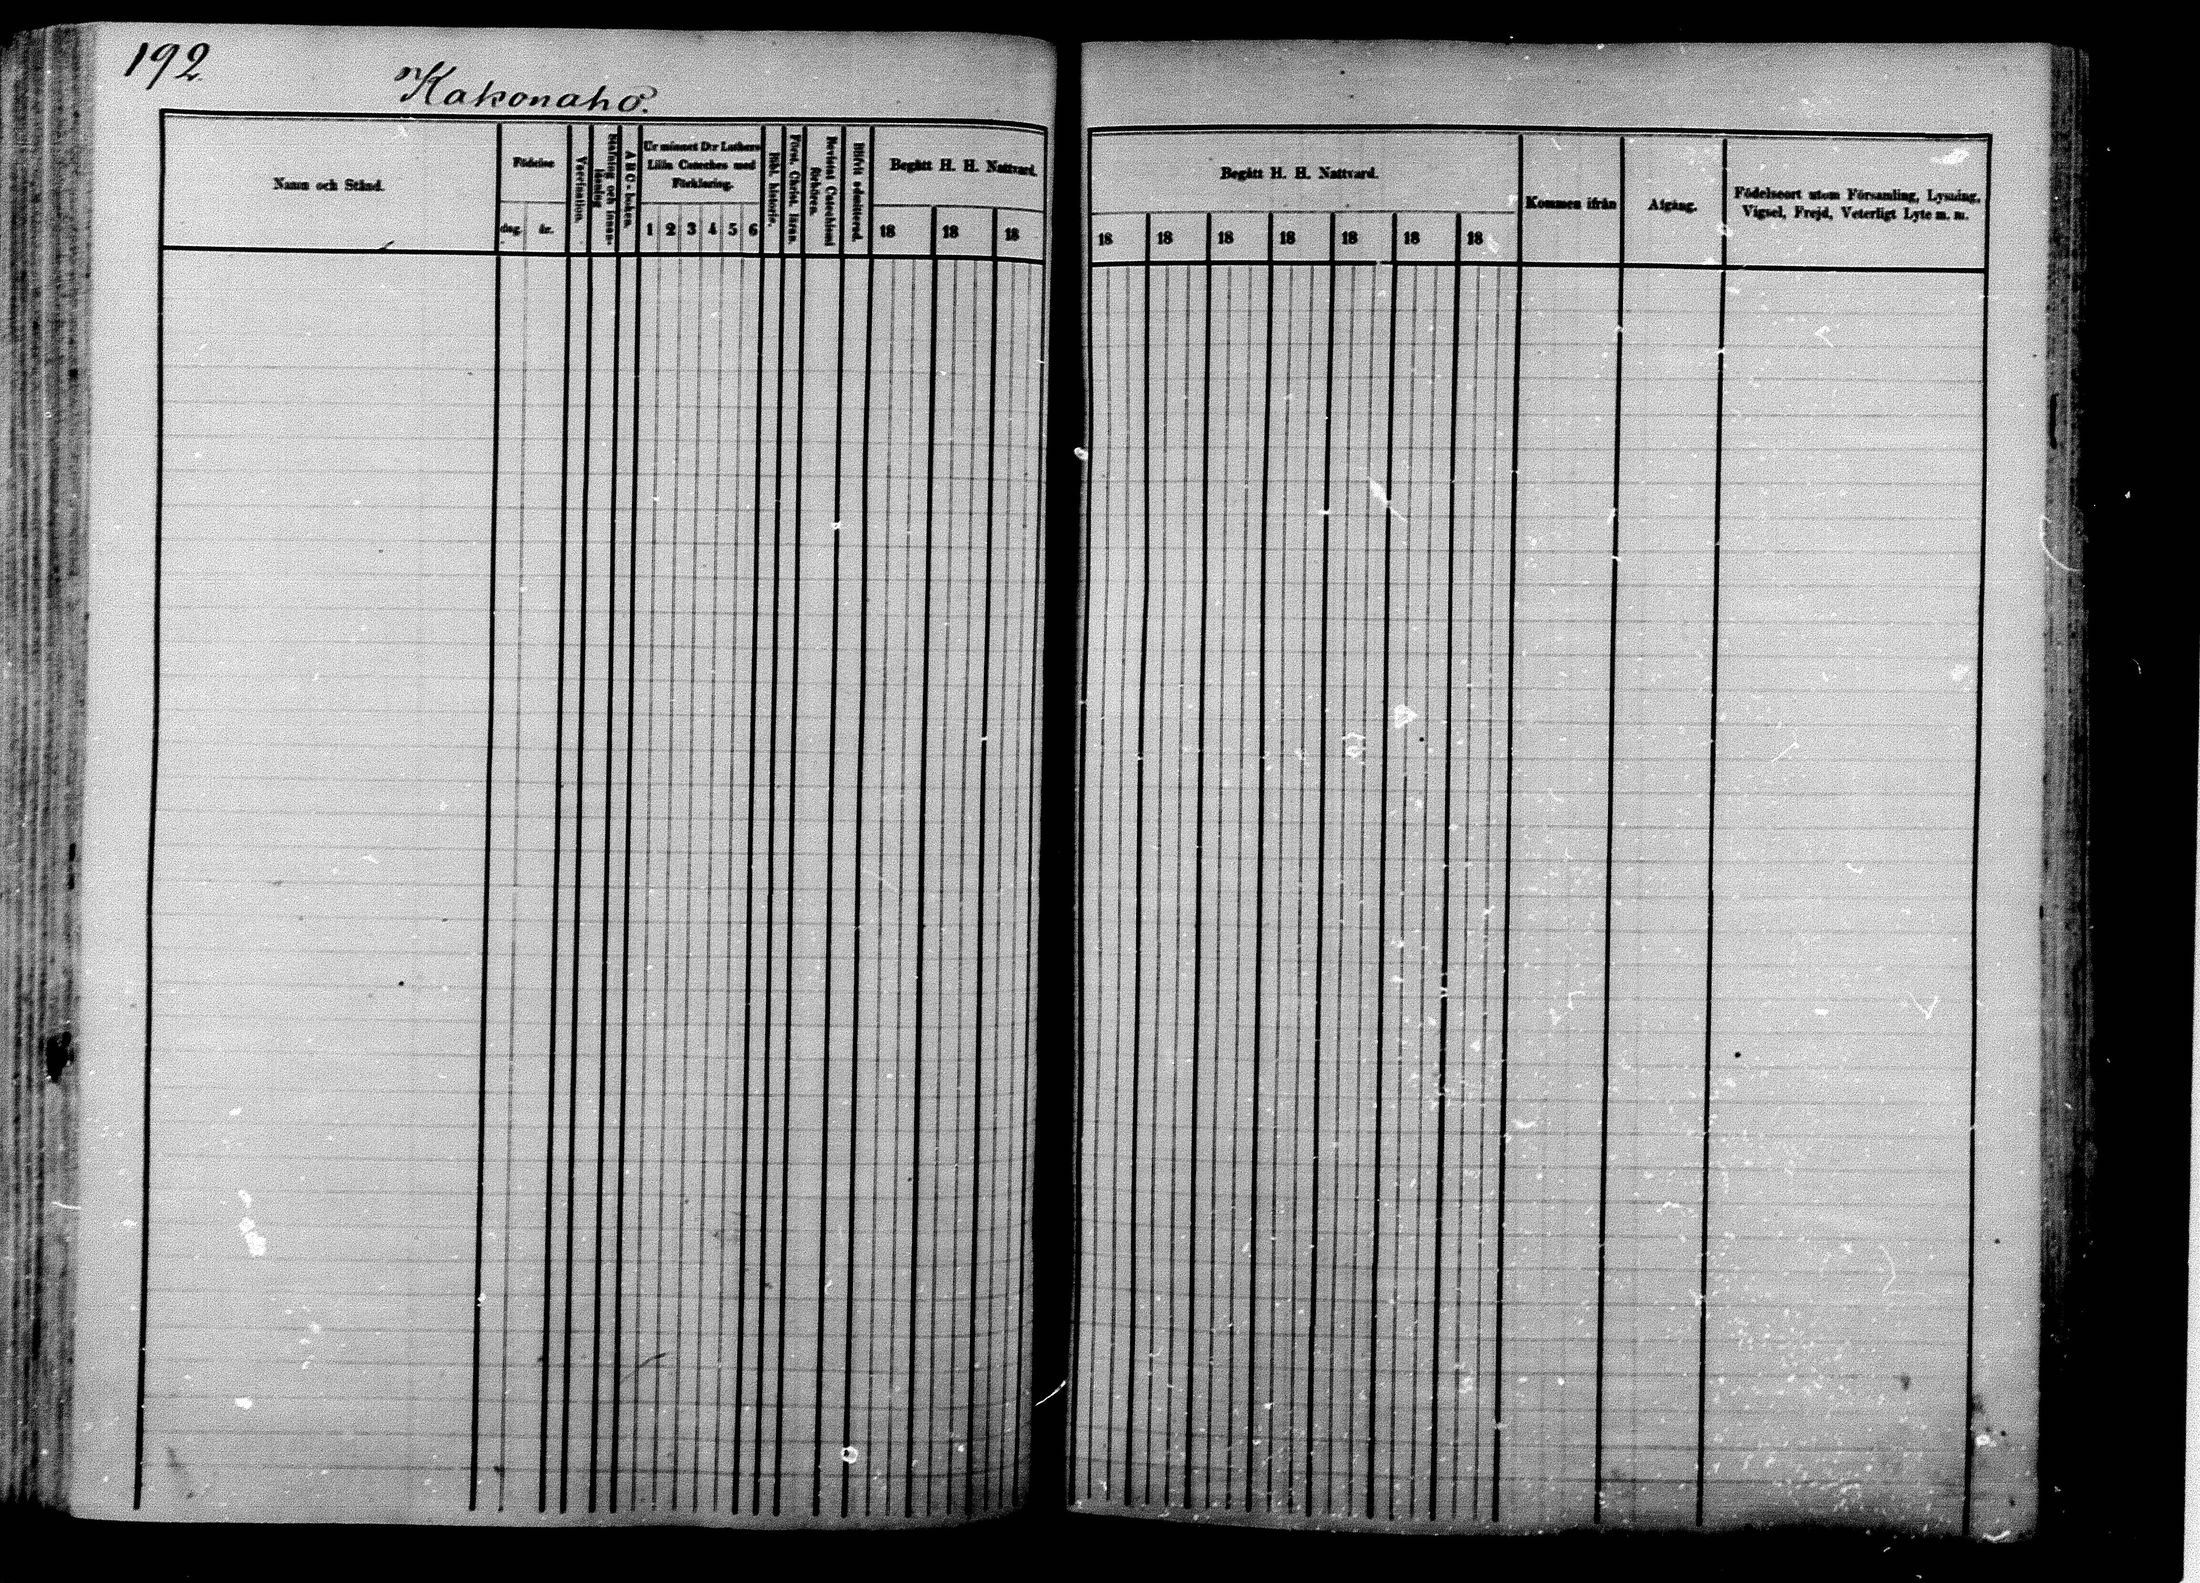 192
Kakonaho.
Namn och Stånd.
Födelse
dag.
år.
Vaccination.
Stafning och innan-
läsning
A B C-boken.
Ur minnet D:r Luthers
Lilla Cateches med
Förklaring.
1 2 3 4 5 6
Bibl. historie.
Först. Christ. läran.
Bevistat Catechismi
förhören.
Blifvit admitterad.
Begått H. H. Nattvard.
18 18 18
Begått H. H. Nattvard.
18 18 18 18 18 18 18
Kommen ifrån
Afgång.
Födelseort utom Församling, Lysning,
Vigsel, Frejd, Veterligt Lyte m. m.